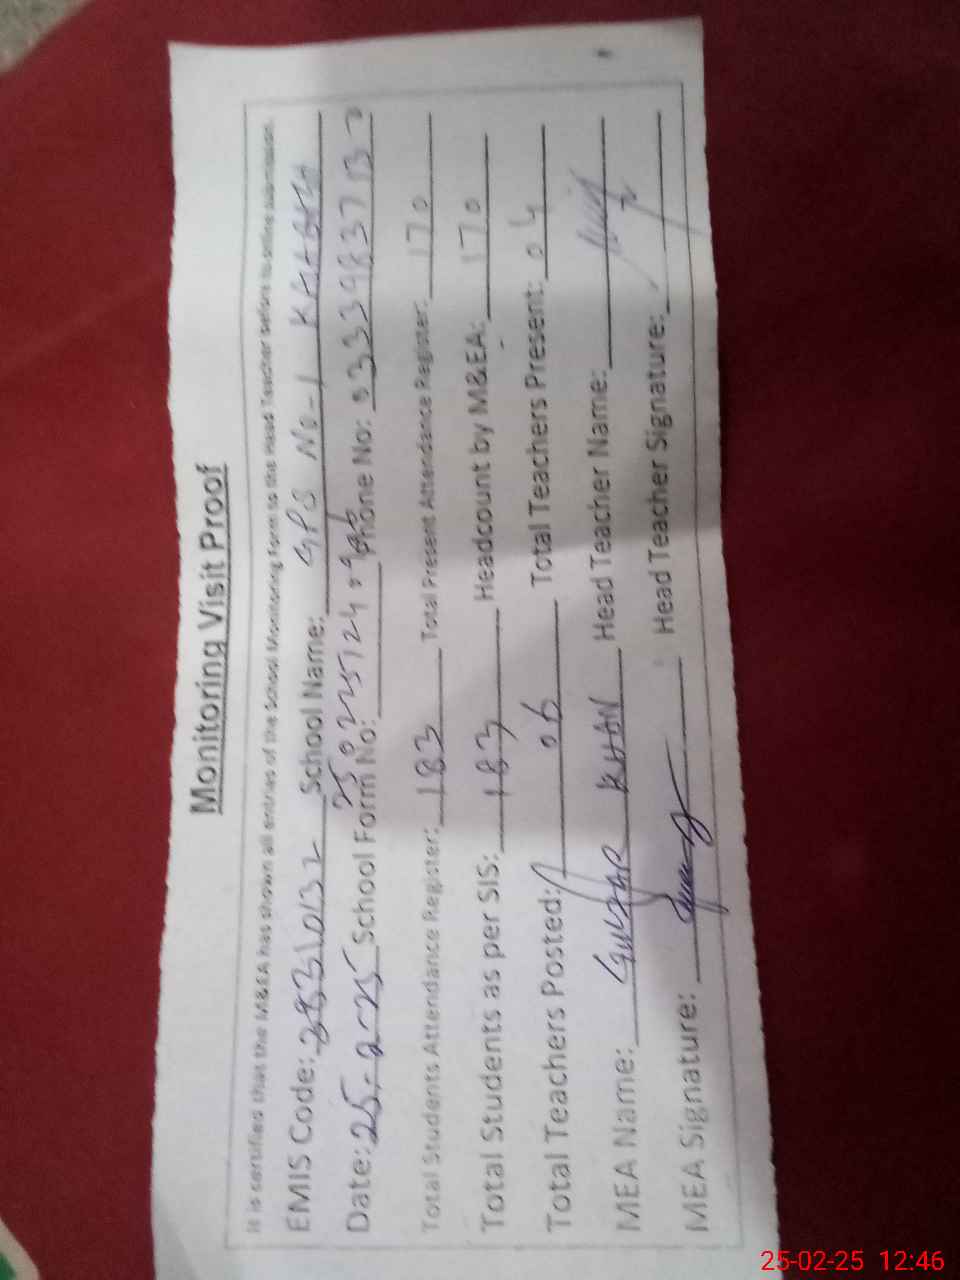 Monitoring Visit Proof
It is certified that the M&EA has shown all entries of the School Monitoring Form to the Head Teacher before its online submission.
EMIS Code: School Name: GPS No-1
Date: 25-2-25 School Form No: Phone No:
Total Students Attendance Register: 183 Total Present Attendance Register: 170
Total Students as per SIS: 183 Headcount by M&EA: 170
Total Teachers Posted: 06 Total Teachers Present: 04
MEA Name: GULZAR KHAN Head Teacher Name:
MEA Signature: Head Teacher Signature:
25-02-25 12:46